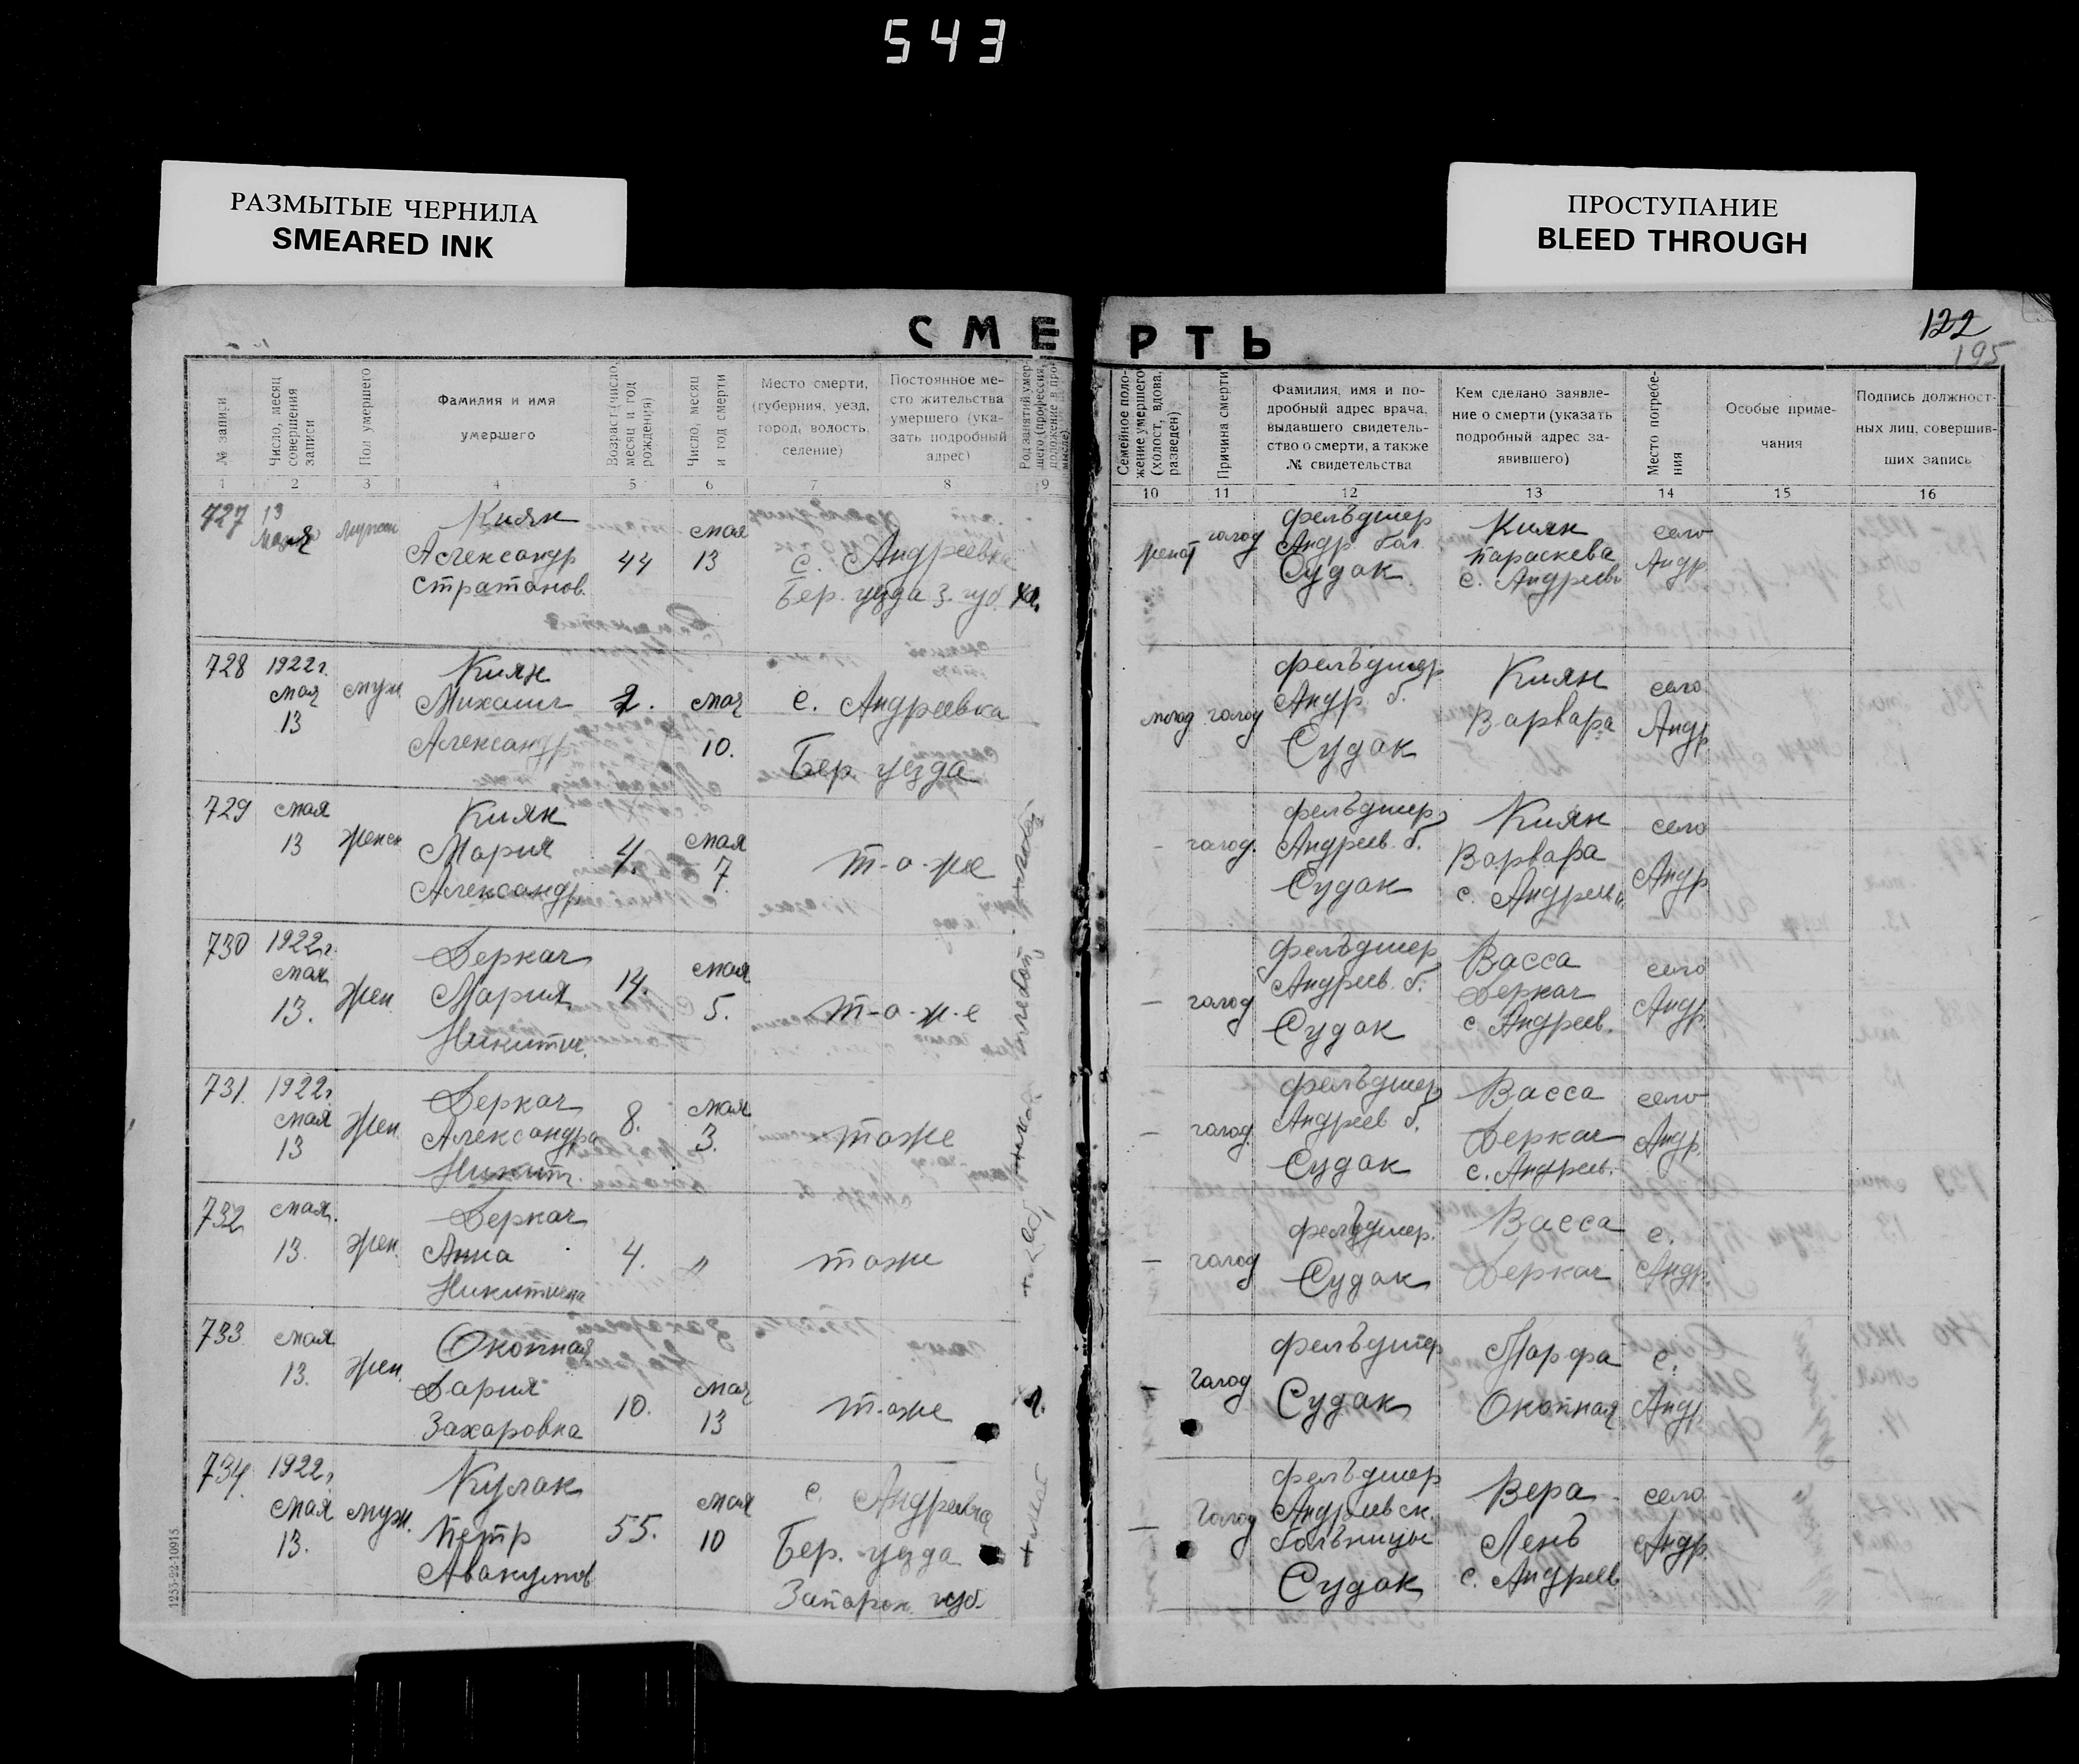 543
РАЗМЫТЫЕ ЧЕРНИЛА
SMEARED INK
ПРОСТУПАНИЕ
BLEED THROUGH
СМЕРТЬ
122
195
№ записи
Число, месяц совершения записи
Пол умершего
Фамилия и имя умершего
Возраст (число, месяц и год рождения)
Число, месяц и год смерти
Место смерти, (губерния, уезд, город, волость, селение)
Постоянное место жительства умершего (указать подробный адрес)
Род занятий умершего (профессия, положение в промысле)
Семейное положение умершего (холост, вдова, разведен)
Причина смерти
Фамилия, имя и подробный адрес врача, выдавшего свидетельство о смерти, а также № свидетельства
Кем сделано заявление о смерти (указать подробный адрес заявившего)
Место погребения
Особые примечания
Подпись должностных лиц, совершивших запись
1 2 3 4 5 6 7 8 9 10 11 12 13 14 15 16
727 13 мая
Киян
Александр
Стратонов.
44
мая
13
с. Андреевка
Бер. уезда З. губ.
женат
голод
фельдшер
Андр. бол.
Судак
Киян
Параскева
с. Андреевк
село
Андр
728 1922 г.
мая
13
муж
Киян
Михаил
Александр
2.
мая
10.
с. Андреевка
Бер. уезда
голод
фельдшер
Андр. б.
Судак
Киян
Варвара
село
Андр
729 мая
13
женск
Киян
Мария
Александр
4.
мая
7
т-о-же
–
голод.
фельдшер
Андреев. б.
Судак
Киян
Варвара
с. Андреевк.
село
Андр
730 1922 г.
мая
13.
жен.
Деркач
Мария
Никитич.
14.
мая
5.
т-о-ж-е
–
голод
фельдшер
Андреев. б.
Судак
Васса
Деркач
с. Андреев.
село
Андр.
731. 1922 г.
мая
13
жен.
Деркач
Александра
Никит.
8.
мая
3.
тоже
–
голод.
фельдшер
Андреев б.
Судак
Васса
Деркач
с. Андреев.
село
Андр.
732 мая.
13.
жен.
Деркач
Анна
Никитична
4.
"
тоже
–
голод
фельдшер.
Судак
Васса
Деркач
с.
Андр.
733 мая
13.
жен.
Окопная
Дария
Захаровна
10.
мая
13
тоже
–
голод
фельдшер
Судак
Марфа
Окопная
с.
Андр
734. 1922 г.
мая
13.
муж.
Кулак
Петр
Авакумов
55.
мая
10
с. Андреевка
Бер. уезда
Запорож. губ.
–
голод
фельдшер
Андреевск.
больницы
Судак
Вера
Лень
с. Андреев
село
Андр.
1253-22-10915.